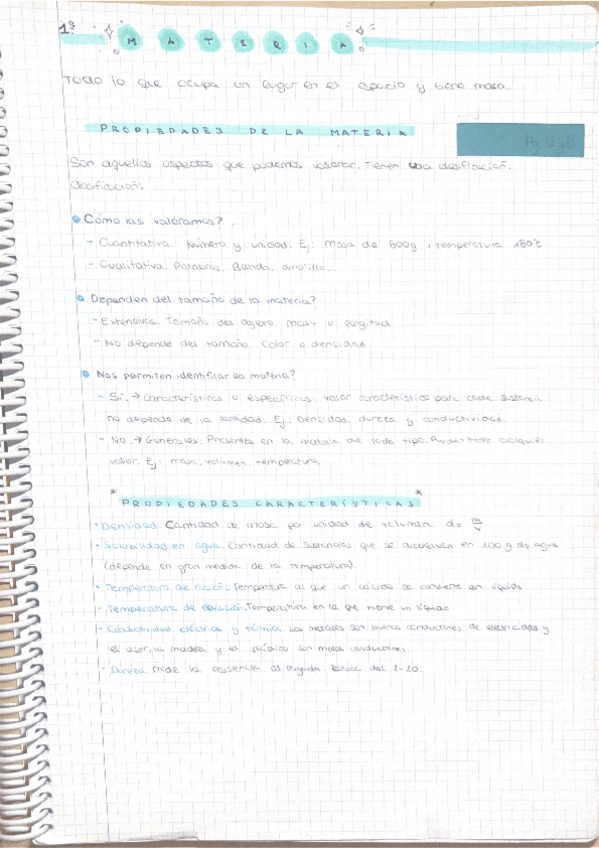 1º MATERIA
Todo lo que ocupa un lugar en el espacio y tiene masa.
PROPIEDADES DE LA MATERIA
Son aquellos aspectos que podemos valorar. Tienen una clasificación.
Clasificación:
Cómo las valoramos?
- Cuantitativa. Número y unidad. Ej: masa de 800g, temperatura 180°C
- Cualitativa: Palabras. Blanda, amarillo...
Dependen del tamaño de la materia?
- Extensivas. Tamaño del objeto. Masa o longitud
- No depende del tamaño. Color o densidad
Nos permiten identificar la materia?
- Sí. → Características o específicas: valor característico para cada sustancia
no depende de la cantidad. Ej: Densidad, dureza y conductividad.
- No. → Generales. Presentes en la materia de todo tipo. Pueden tener cualquier
valor. Ej: masa, volumen, temperatura.
PROPIEDADES CARACTERÍSTICAS
· Densidad. Cantidad de masa por unidad de volumen d= m/v
· Solubilidad en agua. Cantidad de sustancias que se disuelven en 100 g de agua
(depende en gran medida de la temperatura).
· Temperatura de fusión. Temperatura al que un sólido se convierte en líquido
· Temperatura de ebullición. Temperatura en la que hierve un líquido
· Conductividad eléctrica y térmica. Los metales son buenos conductores de electricidad y
el calor, la madera y el plástico son malos conductores.
· Dureza. Mide la resistencia al rayado. Escala del 1-10.